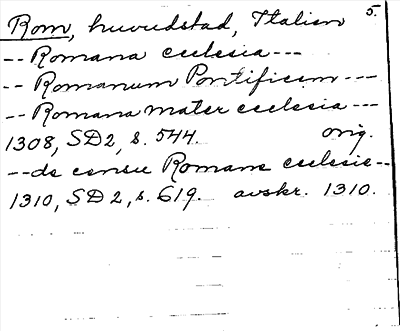 5.
Rom, huvudstad, Italien
-- Romana ecclesia ---
-- Romanum Pontificem ---
-- Romana mater ecclesia ---
1308, SD2, s. 544. orig.
-- de censu Romane ecclesie --
1310, SD2, s. 619. avskr. 1310.